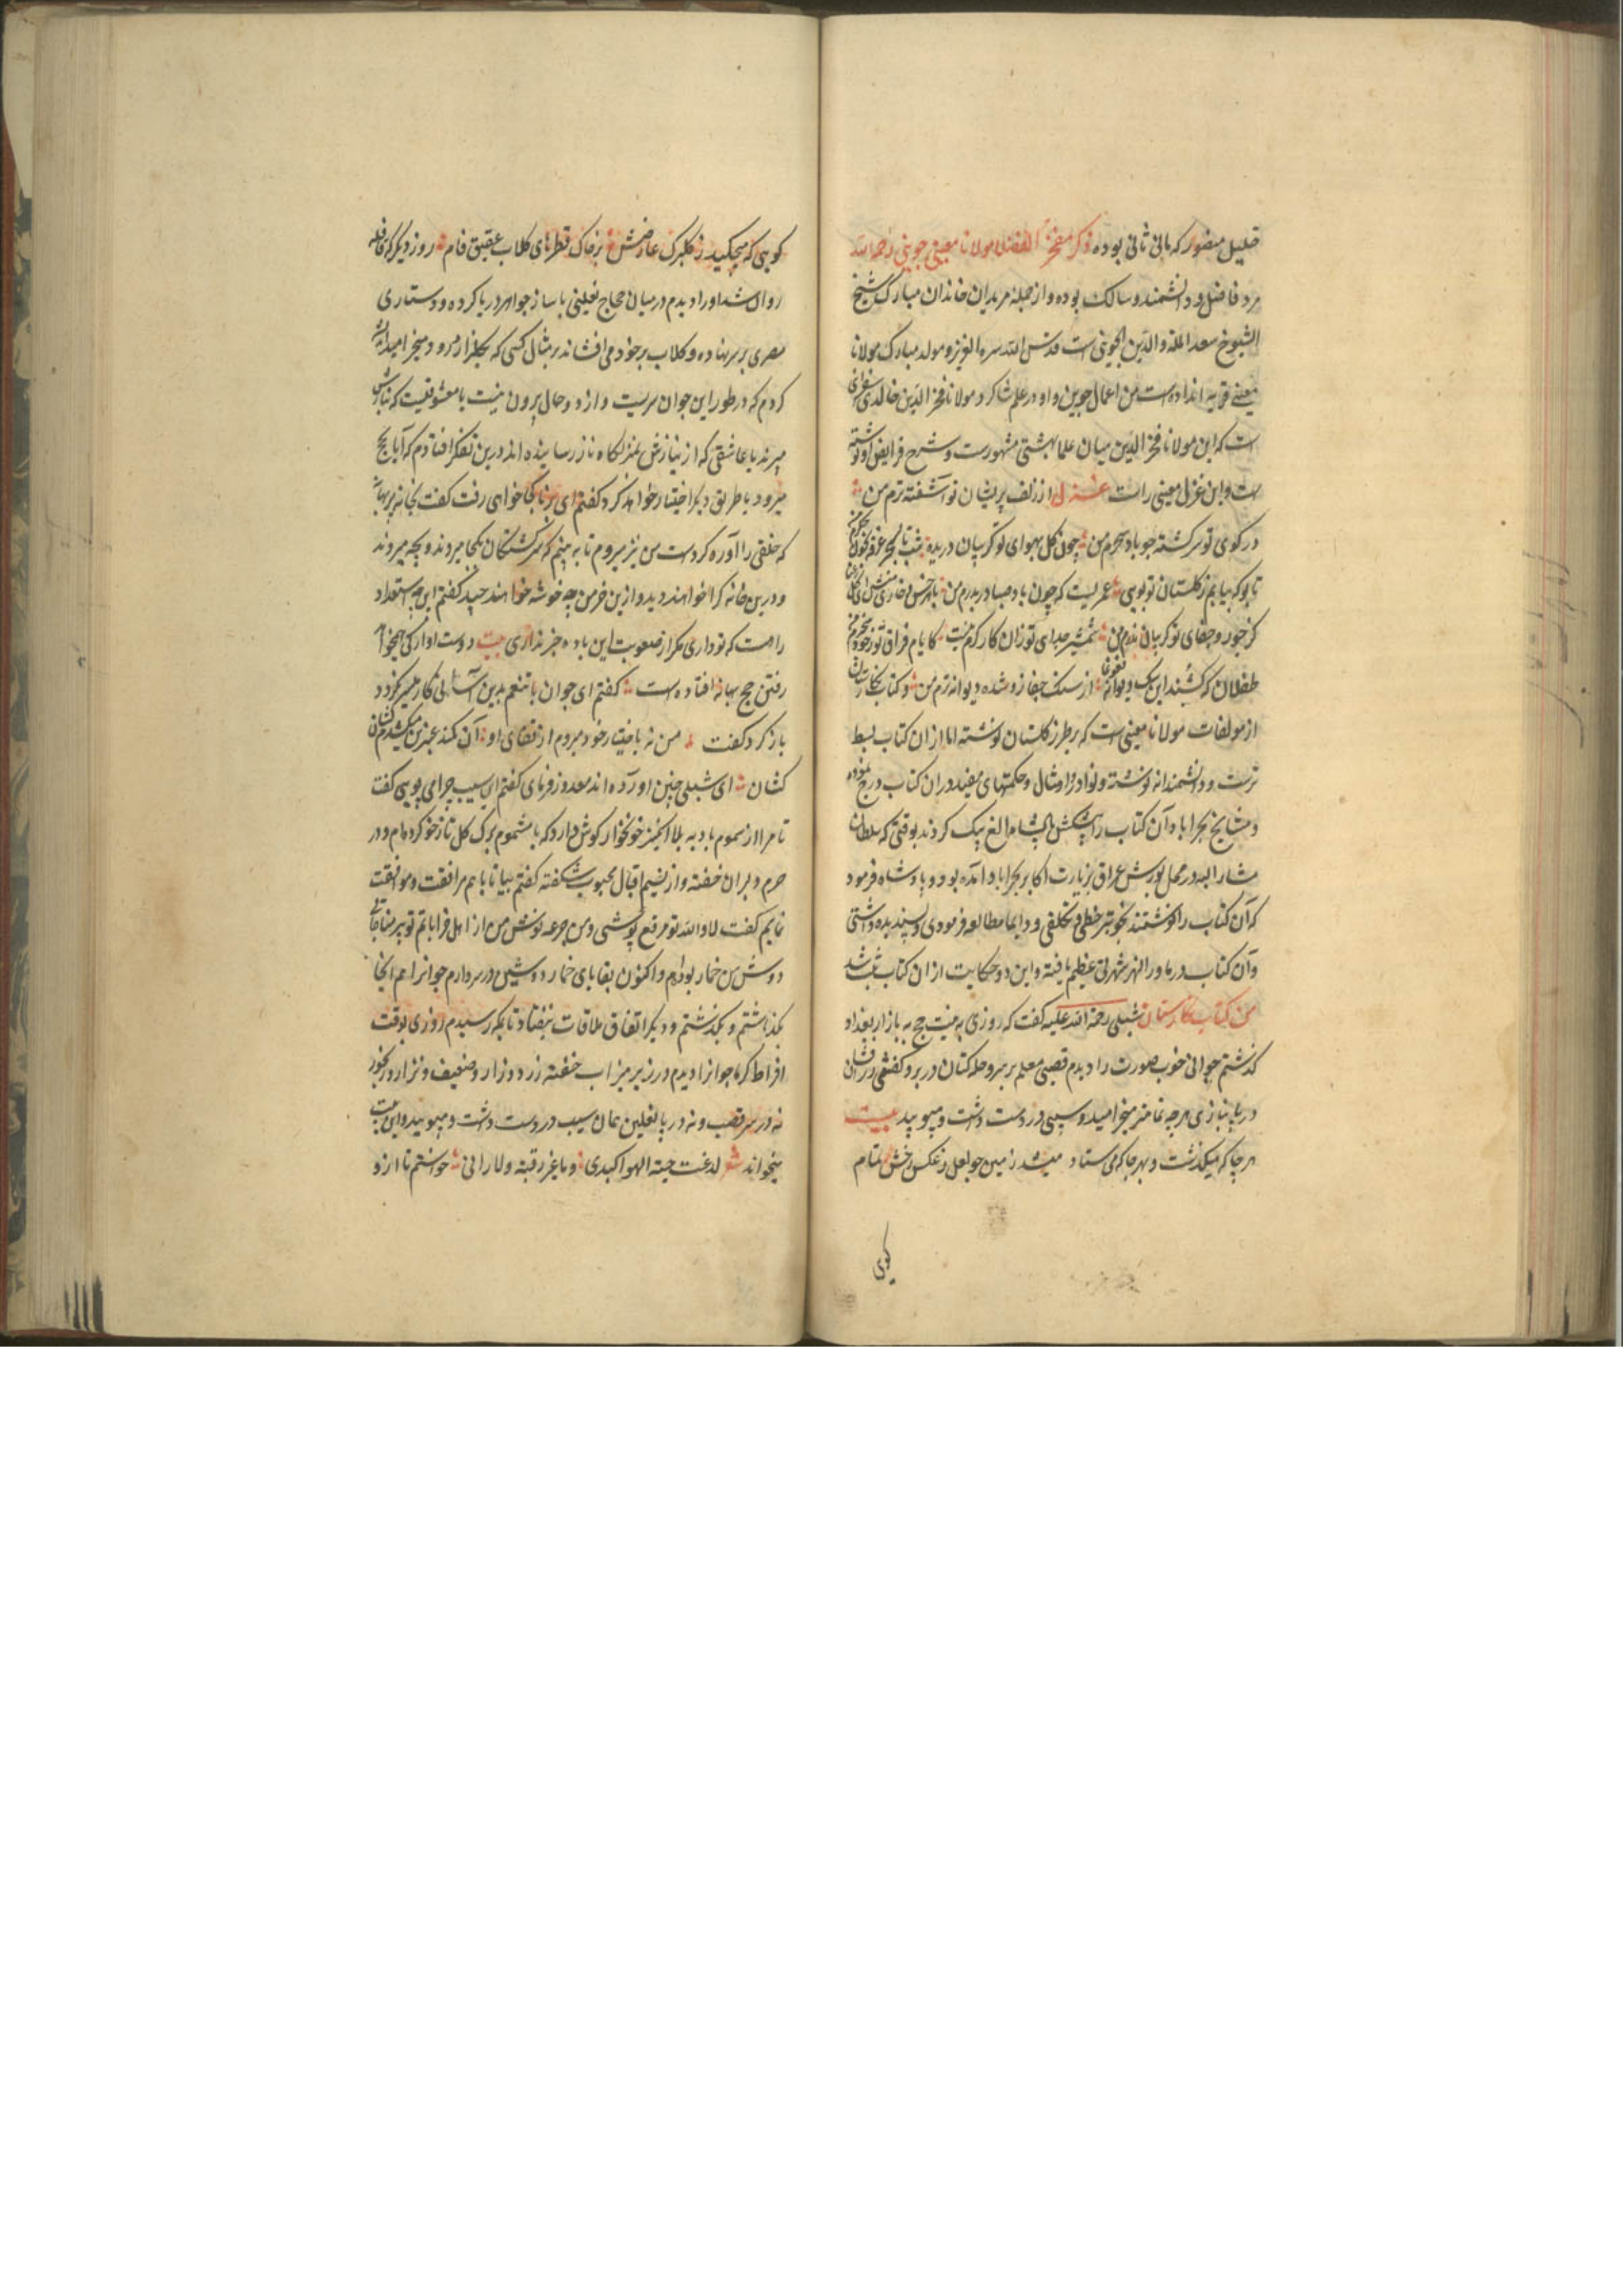 خلیل مصور که مانی ثانی بوده ذکر مفخر الفضلا مولانا معینی جوینی رحمه الله
مرد فاضل و دانشمند و سالک بوده و از جمله مریدان خاندان مبارک شیخ
الشیوخ سعد المله والدین الحموی است قدس الله سره العزیز و مولد مبارک مولانا
معینی قریه انداده است من اعمال جوین و او در علم شاکرد مولانا فخر الدین خالدی اسفراینی
است که این مولانا فخر الدین میان علما بهشتی مشهورست و شرح فرایض او نوشته
ست و این غزل معینی راست غزل از زلف پریشان تو آشفته ترم من
در کوی تو سرکشته چو باد سحرم من چون کل بهوای تو کریبان دریده
تا بو که بیابم ز کلستان تو بویی عمریست که چون باد صبا در بدرم من
کز جور و جفای تو شمشیر جدایی تو زان کارکرم نیست کایام فراق تو
طفلان که کشند این سک دیوانه از سنک جفا ز و شده دیوانه ترم من و کتاب نکارستان
از مولفات مولانا معینی است که بر طرز کلستان نوشته اما از ان کتاب بسط
ترست و دانشمندانه نوشته و نوادر و امثال و حکمتهای مفید در ان کتاب درج نموده
و مشایخ بحراباد آن کتاب را پیشکش پادشاه الغ بیک کردند بوقتی که سلطان
مشار الیه در محل یورش عراق بزیارت اکابر بحراباد آمده بود و پادشاه فرمود
که آن کتاب را نوشتند بخوبتر خطی و تکلفی و دایما مطالعه فرمودی و پسندیده داشتی
و آن کتاب در ماورالنهر شهرتی عظیم یافته و این دو حکایت از ان کتاب ثبت شد
من کتاب نکارستان شبلی رحمة الله علیه کفت که روزی به نیت حج به بازار بغداد
کذشتم جوانی خوب صورت را دیدم قصبی معلم بر سر و حله کتان در بر و کفشی زرافشان
در پا بنازی هر چه تمامتر میخرامید و سیبی در دست داشت و میبویید بیت
هر جا که میکذشت و بهر جا که می ستاد میشد زمین چو لعل ز عکس رخش تمام
کویی
کویی که میچکید ز کلبرک عارضش بر خاک قطرهای کلاب عقیق فام روز دیکر که قافله
روان شد او را دیدم در میان حجاج نعلینی با ساز جواهر در پا کرده و دستاری
مصری بر سر نهاده و کلاب بر خود می افشاند بر مثال کسی که بکلزار میرود میخرامید اندیشه
کردم که در طور این جوان سریست و از دو حال برون نیست یا معشوقیست که بنازش
میبرند یا عاشقی که از نیازش بمنزلکاه ناز رسانیده اند درین تفکر افتادم که آیا بحج
میرود یا طریق دیکر اختیار خواهد کرد کفتم ای برنا کجا خواهی رفت کفت بخانه پر بهانه
که خلقی را آواره کردست من نیز میروم تا به بینم که سرکشتکان بکجا میروند و بچه میروند
و درین خانه کرا خواهند دید و ازین خرمن چه خوشه خواهند چید کفتم این چه استعداد
راهست که تو داری مکر از صعوبت این بادیه خبر نداری بیت دوست آواركی ما میخواهد
رفتن حج بهانه افتاده است کفتم ای جوان با تنعم بدین آسانی کار میسر نکردد
باز کرد کفت من نه باختیار خود میروم از قفای او آن کمند عنبرین میکشدم کشان
کشان ای شبلی چنین آورده اند معذور فرمای کفتم این سیب چرا می بویی کفت
تا مرا از سموم بادیه بلا انکیز خونخوار کوش دارد که با مشموم برک کل تازه خو کرده ام و در
حرم دلبران خفته و از نسیم اقبال محبوب شکفته کفتم بیا تا با هم مرافقت و موافقت
نمایم کفت لا والله تو مرقع پوشی و من جرعه نوش من از اهل خراباتم تو پیر مناجاتی
دوش من خمار بوده ام و اکنون بقایای خمار دوشین در سر دارم جوانرا هم انجا
بکذاشتم و بکذشتم و دیکر اتفاق ملاقات نیفتاد تا بمکه رسیدم روزی بوقت
افراط کرما جوانرا دیدم در زیر میزاب خفته زرد و زار و ضعیف و نزار و رنجور
نه در سر قصب و نه در پا نعلین همان سیب در دست داشت و میبویید و این بیت
میخواند شعر لدغت حیة الهوا کبدی و ما غیر رقبته ولا راقی خواستم تا ازو